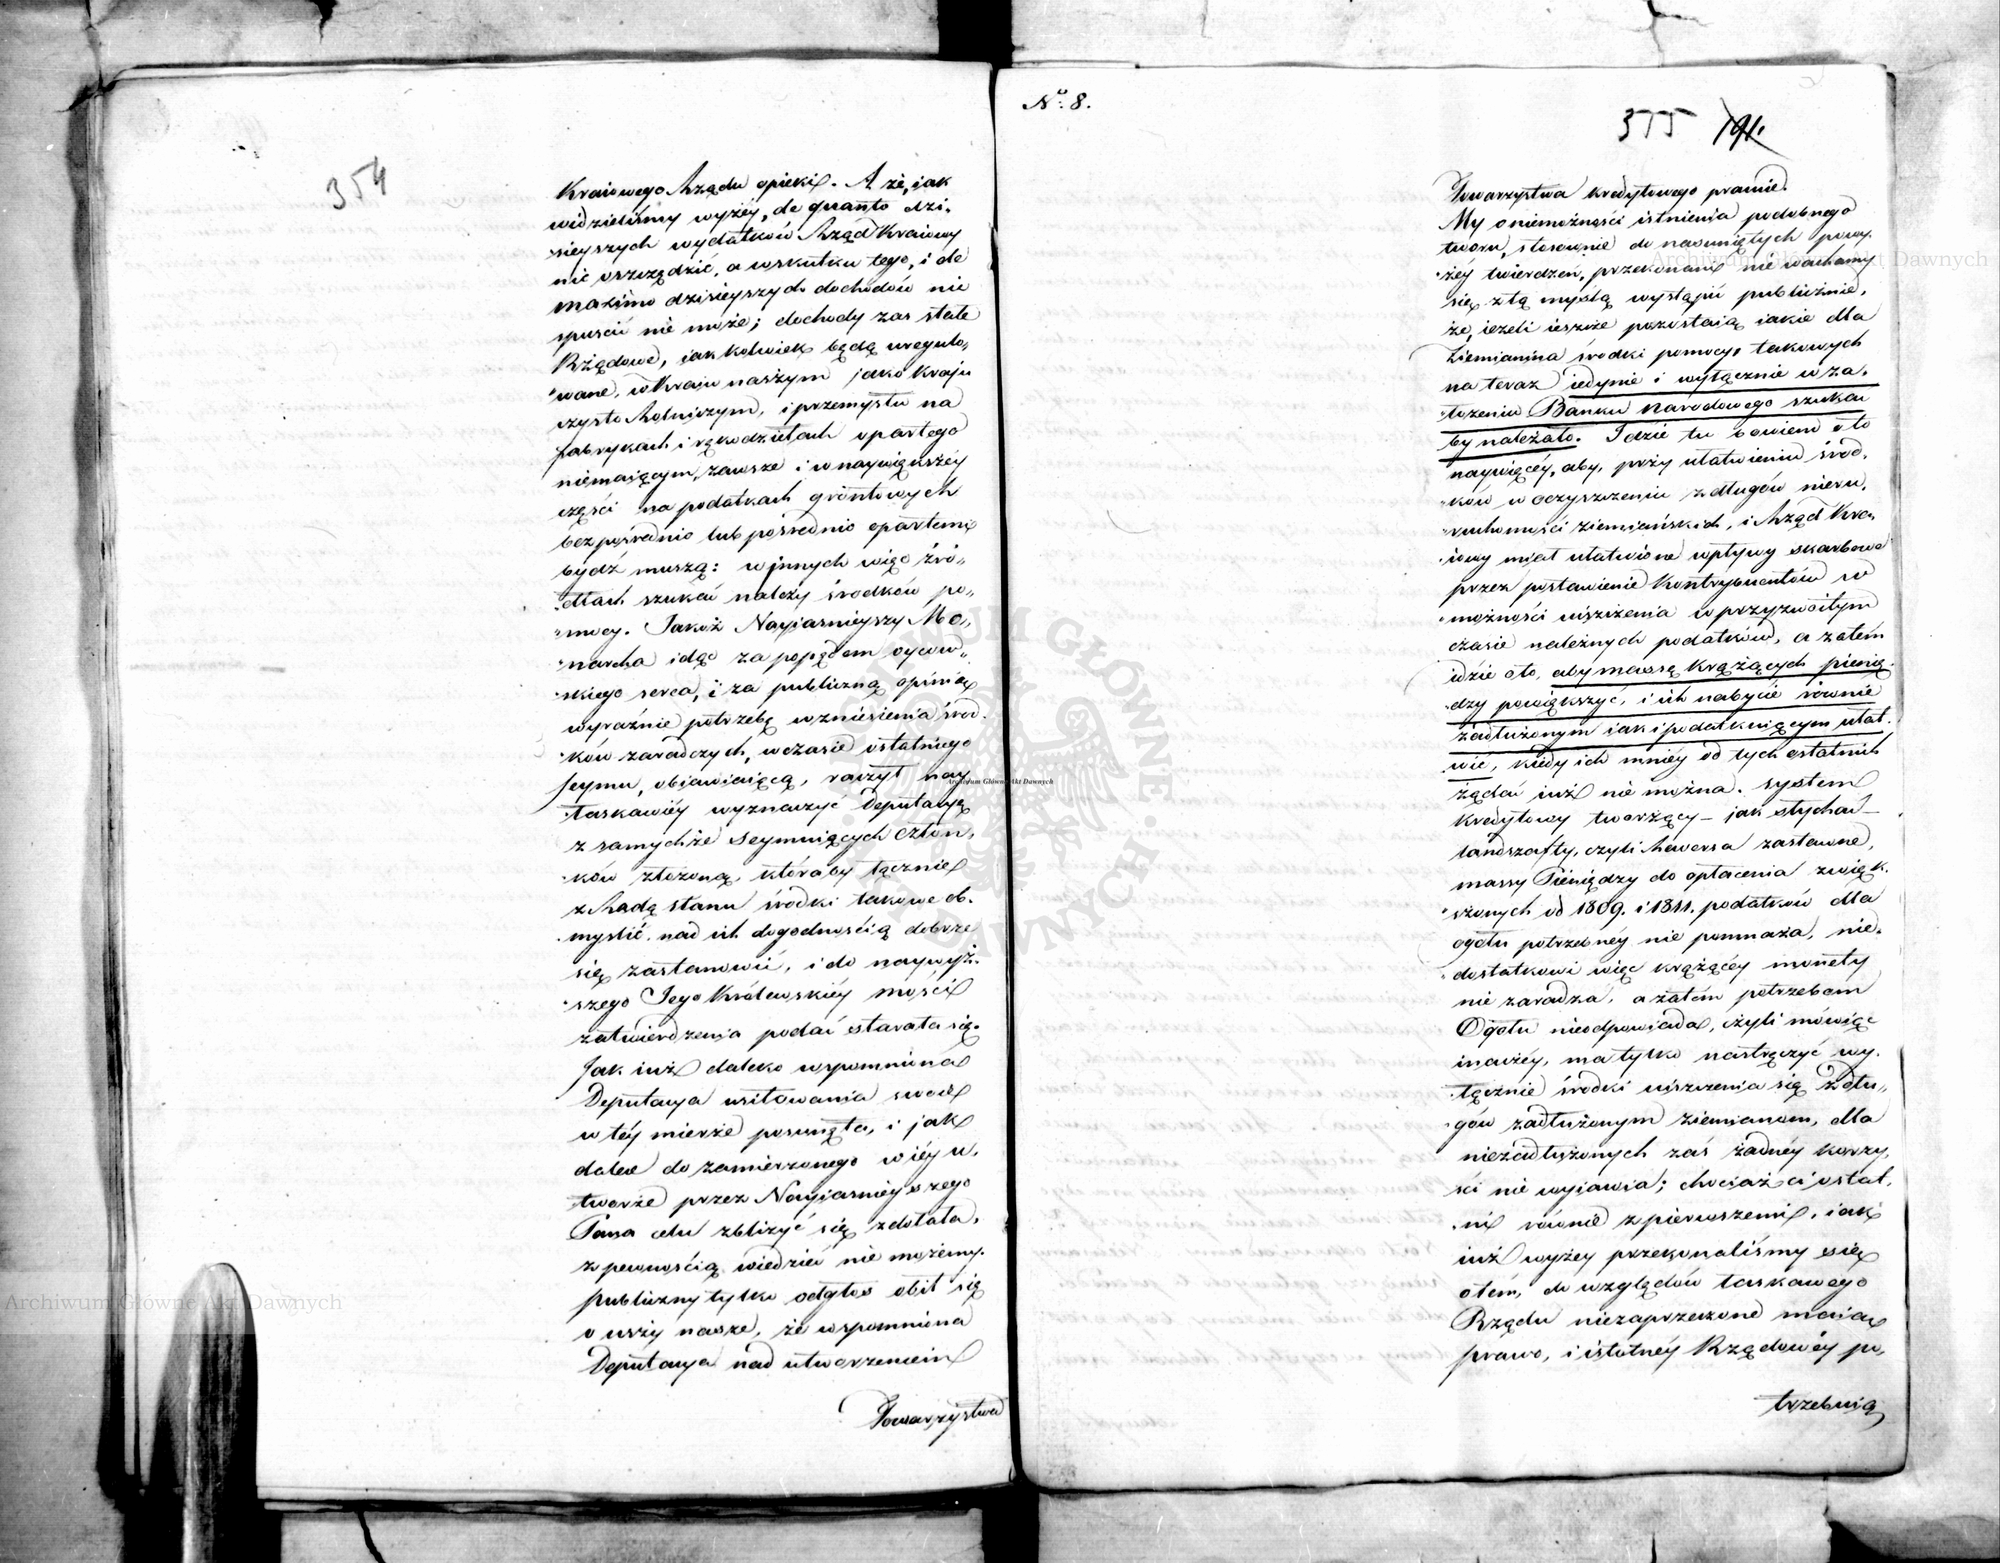 354
Kraiowego Rządu opieki. A że, jak
widzieliśmy wyżéy, de quanto dzi„
„sieyszych wydatków Rząd Kraiowy
nic oszczędzić, a wskutku tego, i de
maximo dzisieyszych dochodów nic
spuścić nie może; dochody zas stałe
Rządowe, jak kolwiek będą uregulo„
„wane, w Kraju naszym jako Kraju
czysto Rolniczym, i przemysłu na
fabrykach i rękodziełach opartego
niemaiącym, zawsze i w naywiększéy
części na podatkach gróntowych
bezpośrednio lub pośrednio opartemi
bydź muszą: w innych więc źró„
„dłach szukać należy środków po„
„mocy. Jakoż Nayiaśnieyszy Mo„
„narcha idąc za popędem oycow„
„skiego serca, i za publiczną opinią
wyraźnie potrzebę wzniesienia środ„
„ków zaradczych, w czasie ostatniego
Seymu, obiawiaiącą, raczył nay
łaskawiéy wyznaczyć Deputacyą
z samychże Seymuiących człon„
„ków złożoną, któraby łącznie
z Radą stanu środki takowe ob„
myslić, nad ich dogodnością dobrze
się zastanowić, i do naywyż„
„szego Jego Królewskiéy mości
zatwierdzenia podać starała się.
Jak iuż daleko wspomniona
Deputacya usiłowania swoie
w téy mierze posunęła, i jak
dalece do zamierzonego w iéy u„
tworze przez Nayiaśnieyszego
Pana celu zbliżyć się zdołała,
z pewnością wiedzieć nie możemy.
publiczny tylko odgłos obił się
o uszy nasze, że wspomniona
Deputacya nad utworzeniem
Towarzystwa
No. 8.
355 191.
Towarzystwa kredytowego pracuie.
My o niemożności istnienia podobnego
tworu, stosownie do nasuniętych powy„
„żéy twierdzeń, przekonani nie wachamy
się z tą myslą wystąpić publicznie,
że, ieżeli ieszcze pozostaią iakie dla
Ziemianina środki pomocy, takowych
na teraz iedynie i wyłącznie w za„
„łożeniu Banku narodowego szukać
by należało. Idzie tu bowiem o to
naywięcéy, aby, przy ułatwieniu środ„
„ków w oczyszczeniu z długów nieru„
„ruchomości ziemiańskich, i Rząd Kra„
iowy miał ułatwione wpływy skarbowe
przez postawienie Kontrybuentów w
możności uiszczenia w przyzwoitym
czasie należnych podatków, a zatém
idzie o to, aby massę krążących pienię„
dzy powiększyć, i ich nabycie równie
zadłużonym iak i podatkuiącym ułat„
wić, kiedy ich mniéy od tych ostatnich
żądać iuż nie można. System
kredytowy tworzący – jak słychać –
landszafty, czyli Rewersa zastawne,
massy Pieniędzy do opłacenia zwięk„
„szonych od 1809. i 1811. podatków dla
ogołu potrzebnéy nie pomnaża, nie„
„dostatkowi więc krążącéy monety
nie zaradza, a zatém potrzebom
Ogołu nieodpowiada, czyli mówiąc
inaczéy, ma tylko nastręczyć wy„
„łącznie środki uiszczenia się z dłu„
„gów zadłużonym Ziemianom, dla
niezadłużonych zaś żadnéy korzy„
ści nie wyjawia; chociaż ci ostat„
„ni równie z pierwszemi, iak
iuż wyżey przekonaliśmy się
o tém, do względów łaskawego
Rządu niezaprzeczone maią
prawo, i istotnéy Rządowéy po„
trzebuią
Archiwum Główne Akt Dawnych
Archiwum Główne Akt Dawnych
Archiwum Główne Akt Dawnych
ARCHIWUM GŁÓWNE AKT DAWNYCH